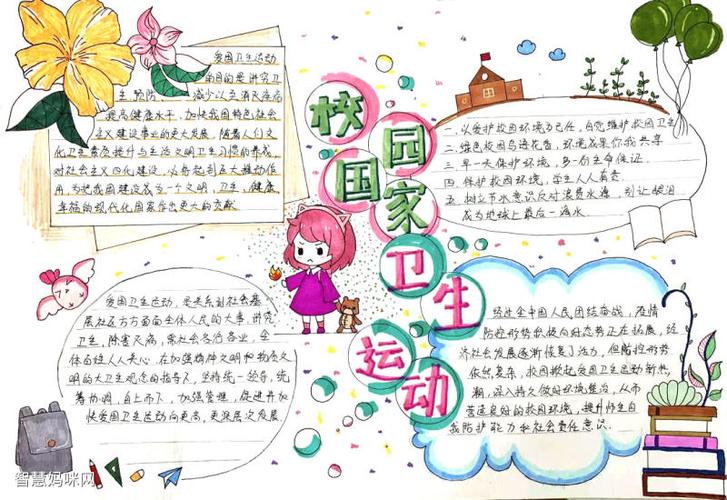 爱国卫生运动
的目的是讲究卫
生、预防、减少以至消灭疾病
提高健康水平，加快我国特色社会
主义建设事业的更大发展，随着人们文
化卫生素质提升与生活文明卫生习惯的养成，
对社会主义四化建设，必将起到巨大推动作
用，为把我国建设成为一个文明、卫生、健康
幸福的现代化国家作出更大的贡献
校园
国家
卫生
运动
一、以爱护校园环境为己任，自觉维护校园卫生
二、绿色校园鸟语花香，环境成果你我共享
三、早一天保护环境，多一份生命保证
四、保护校园环境，学生人人有责
五、树立节水意识反对浪费水源，别让眼泪
成为地球上最后一滴水
爱国卫生运动，是关系到社会基
层社区方方面面全体人民的大事，讲究
卫生，除害灭病，需社会各治各业，全
体百姓人人关心，在加强精神文明和物质文
明的大卫生观念的指导下，坚持统一领导，统
筹协调，自上而下，加强管理，促进并加
快爱国卫生运动向更高，更深层次发展．
经过全中国人民团结奋战，疫情
防控形势积极向好态势正在拓展，经
济社会发展逐渐恢复了活力，但防控形势
依然复杂，校园掀起爱国卫生运动新热
潮，深入持久做好环境整治，从而
营造良好的校园环境，提升师生自
我防护能力和社会责任意识．
智慧妈咪网